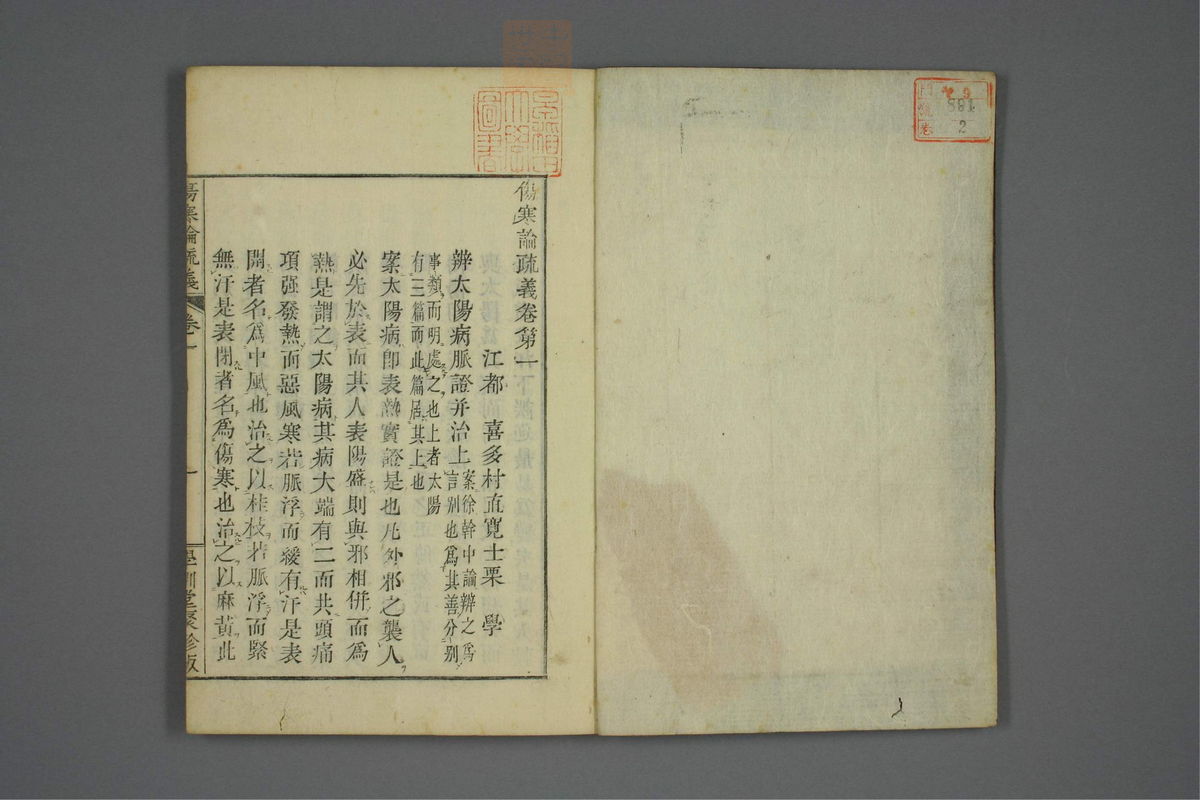 傷寒論疏義卷第一
江都 喜多村直寬士栗 學
辨太陽病脈證并治上
案徐幹中論辨之爲
言別也爲其善分別
事類而明處之也上者太陽
有三篇而此篇居其上也
案太陽病卽表熱實證是也凡外邪之襲人
必先於表而其人表陽盛則與邪相併而爲
熱是謂之太陽病其病大端有二而共頭痛
項强發熱而惡風寒若脈浮而緩有汗是表
開者名爲中風也治之以桂枝若脈浮而緊
無汗是表閉者名爲傷寒也治之以麻黃此
傷寒論疏義 卷一 一 學訓堂聚珍版
圖書
881
2